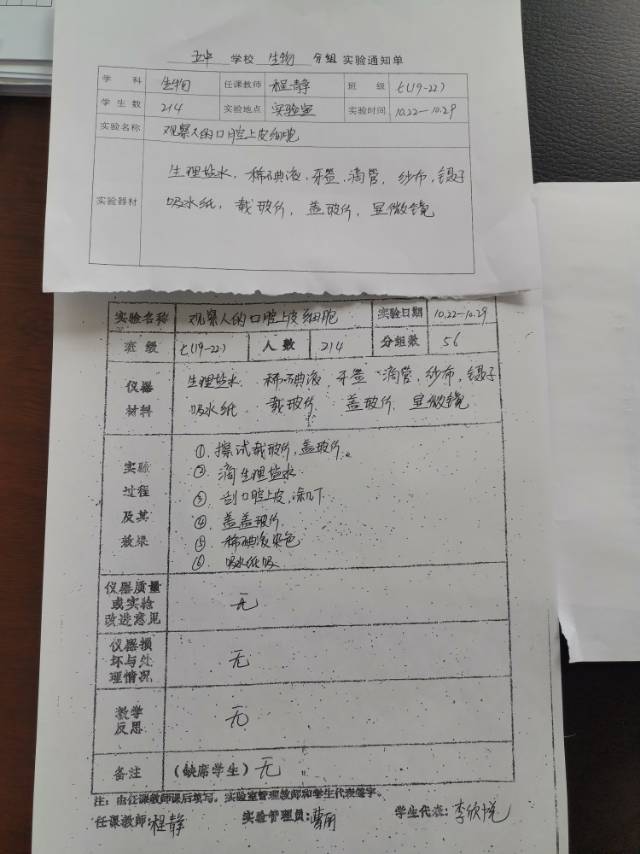 五中 学校 生物 分组 实验通知单
学 科 生物 任课教师 程静 班 级 七(19-22)
学生数 214 实验地点 实验室 实验时间 10.22—10.29
实验名称 观察人的口腔上皮细胞
实验器材 生理盐水，稀碘液，牙签，滴管，纱布，镊子
吸水纸，载玻片，盖玻片，显微镜
实验名称 观察人的口腔上皮细胞 实验日期 10.22—10.29
班 级 七(19-22) 人 数 214 分组数 56
仪器 生理盐水 稀碘液，牙签 滴管，纱布，镊子
材料 吸水纸 载玻片 盖玻片 显微镜
实验过程及其效果
①. 擦试载玻片，盖玻片。
② 滴生理盐水
③ 刮口腔上皮，涂几下
④ 盖盖玻片
⑤ 稀碘液染色
⑥ 吸水纸吸
仪器质量或实验改进意见 无
仪器损坏与处理情况 无
教学反思 无
备注 (缺席学生) 无
注：由任课教师课后填写，实验室管理教师和学生代表签字。
任课教师：程静 实验管理员： 学生代表：李欣悦